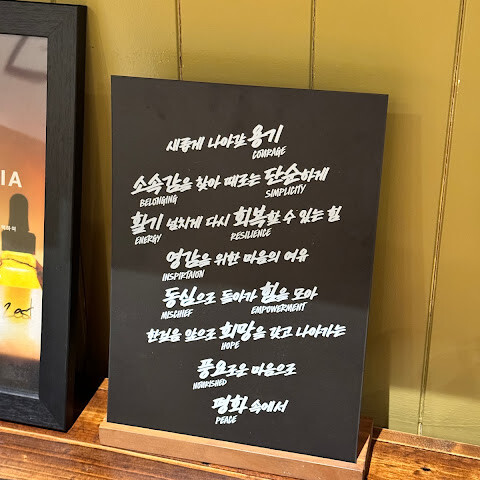 IA
새롭게 나아갈 용기
COURAGE
소속감을 찾아 때로는 단순하게
BELONGING SIMPLICITY
활기 넘치게 다시 회복할 수 있는 힘
ENERGY RESILIENCE
영감을 위한 마음의 여유
INSPIRTAION
동심으로 돌아가 힘을 모아
MISCHIEF EMPOWERMENT
한걸음 앞으로 희망을 갖고 나아가는
HOPE
풍요로운 마음으로
NOURISHED
평화 속에서
PEACE